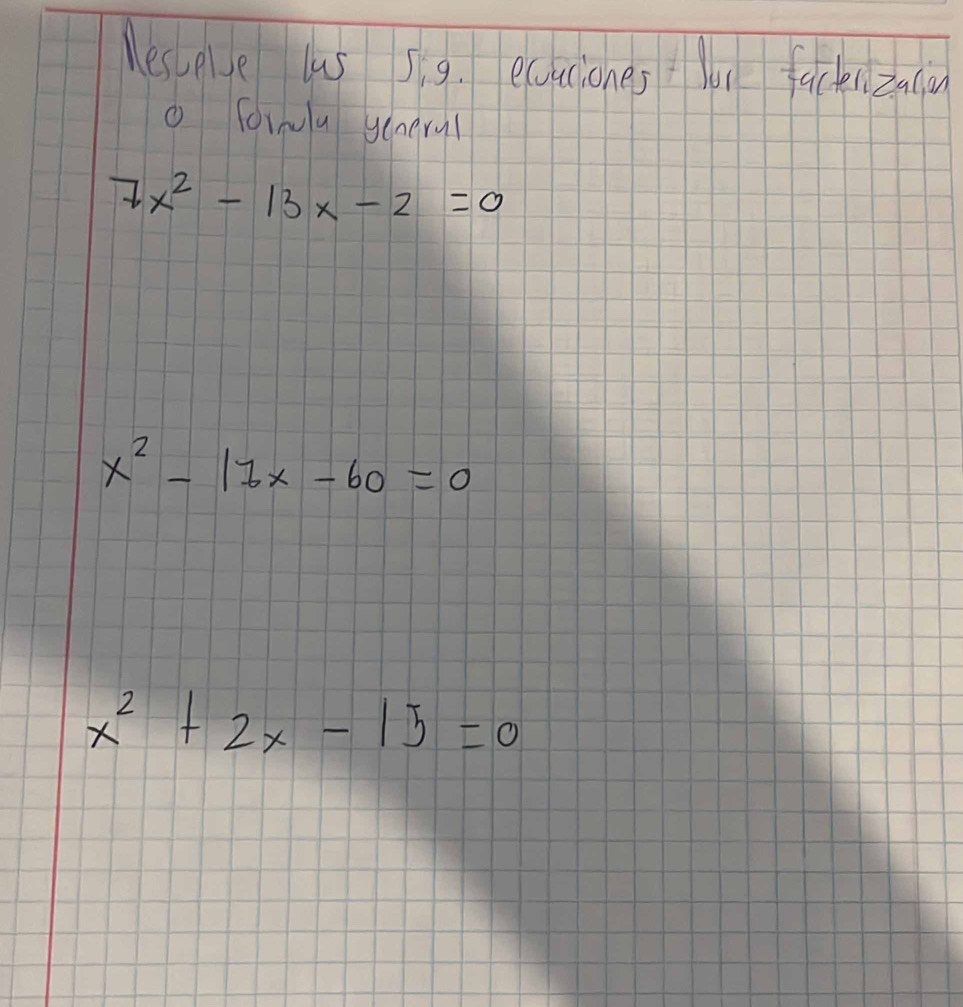 Resuelve las sig. ecuaciones por factorización
o formula general
7x² - 13x - 2 = 0
x² - 17x - 60 = 0
x² + 2x - 15 = 0